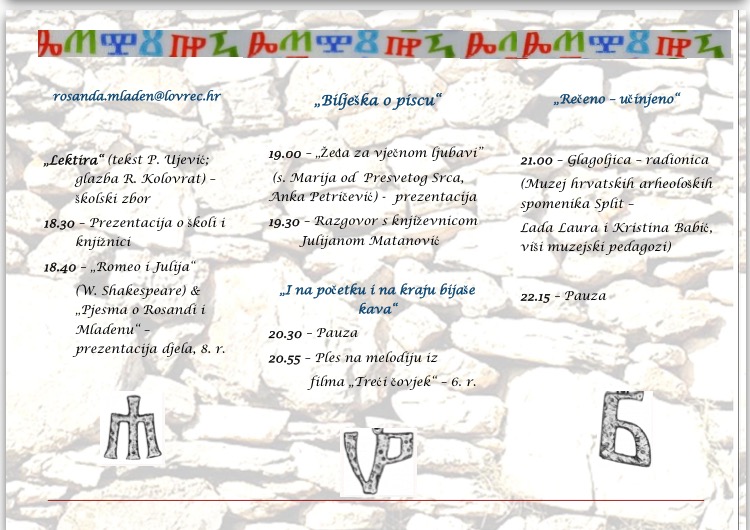 rosanda.mladen@lovrec.hr
„Lektira“ (tekst P. Ujević;
glazba R. Kolovrat) –
školski zbor
18.30 – Prezentacija o školi i
knjižnici
18.40 – „Romeo i Julija“
(W. Shakespeare) &
„Pjesma o Rosandi i
Mladenu“ –
prezentacija djela, 8. r.
„Bilješka o piscu“
19.00 – „Žeđa za vječnom ljubavi”
(s. Marija od Presvetog Srca,
Anka Petričević) - prezentacija
19.30 – Razgovor s književnicom
Julijanom Matanović
„I na početku i na kraju bijaše
kava“
20.30 – Pauza
20.55 – Ples na melodiju iz
filma „Treći čovjek“ – 6. r.
„Rečeno – učinjeno“
21.00 – Glagoljica – radionica
(Muzej hrvatskih arheoloških
spomenika Split –
Lada Laura i Kristina Babić,
viši muzejski pedagozi)
22.15 – Pauza